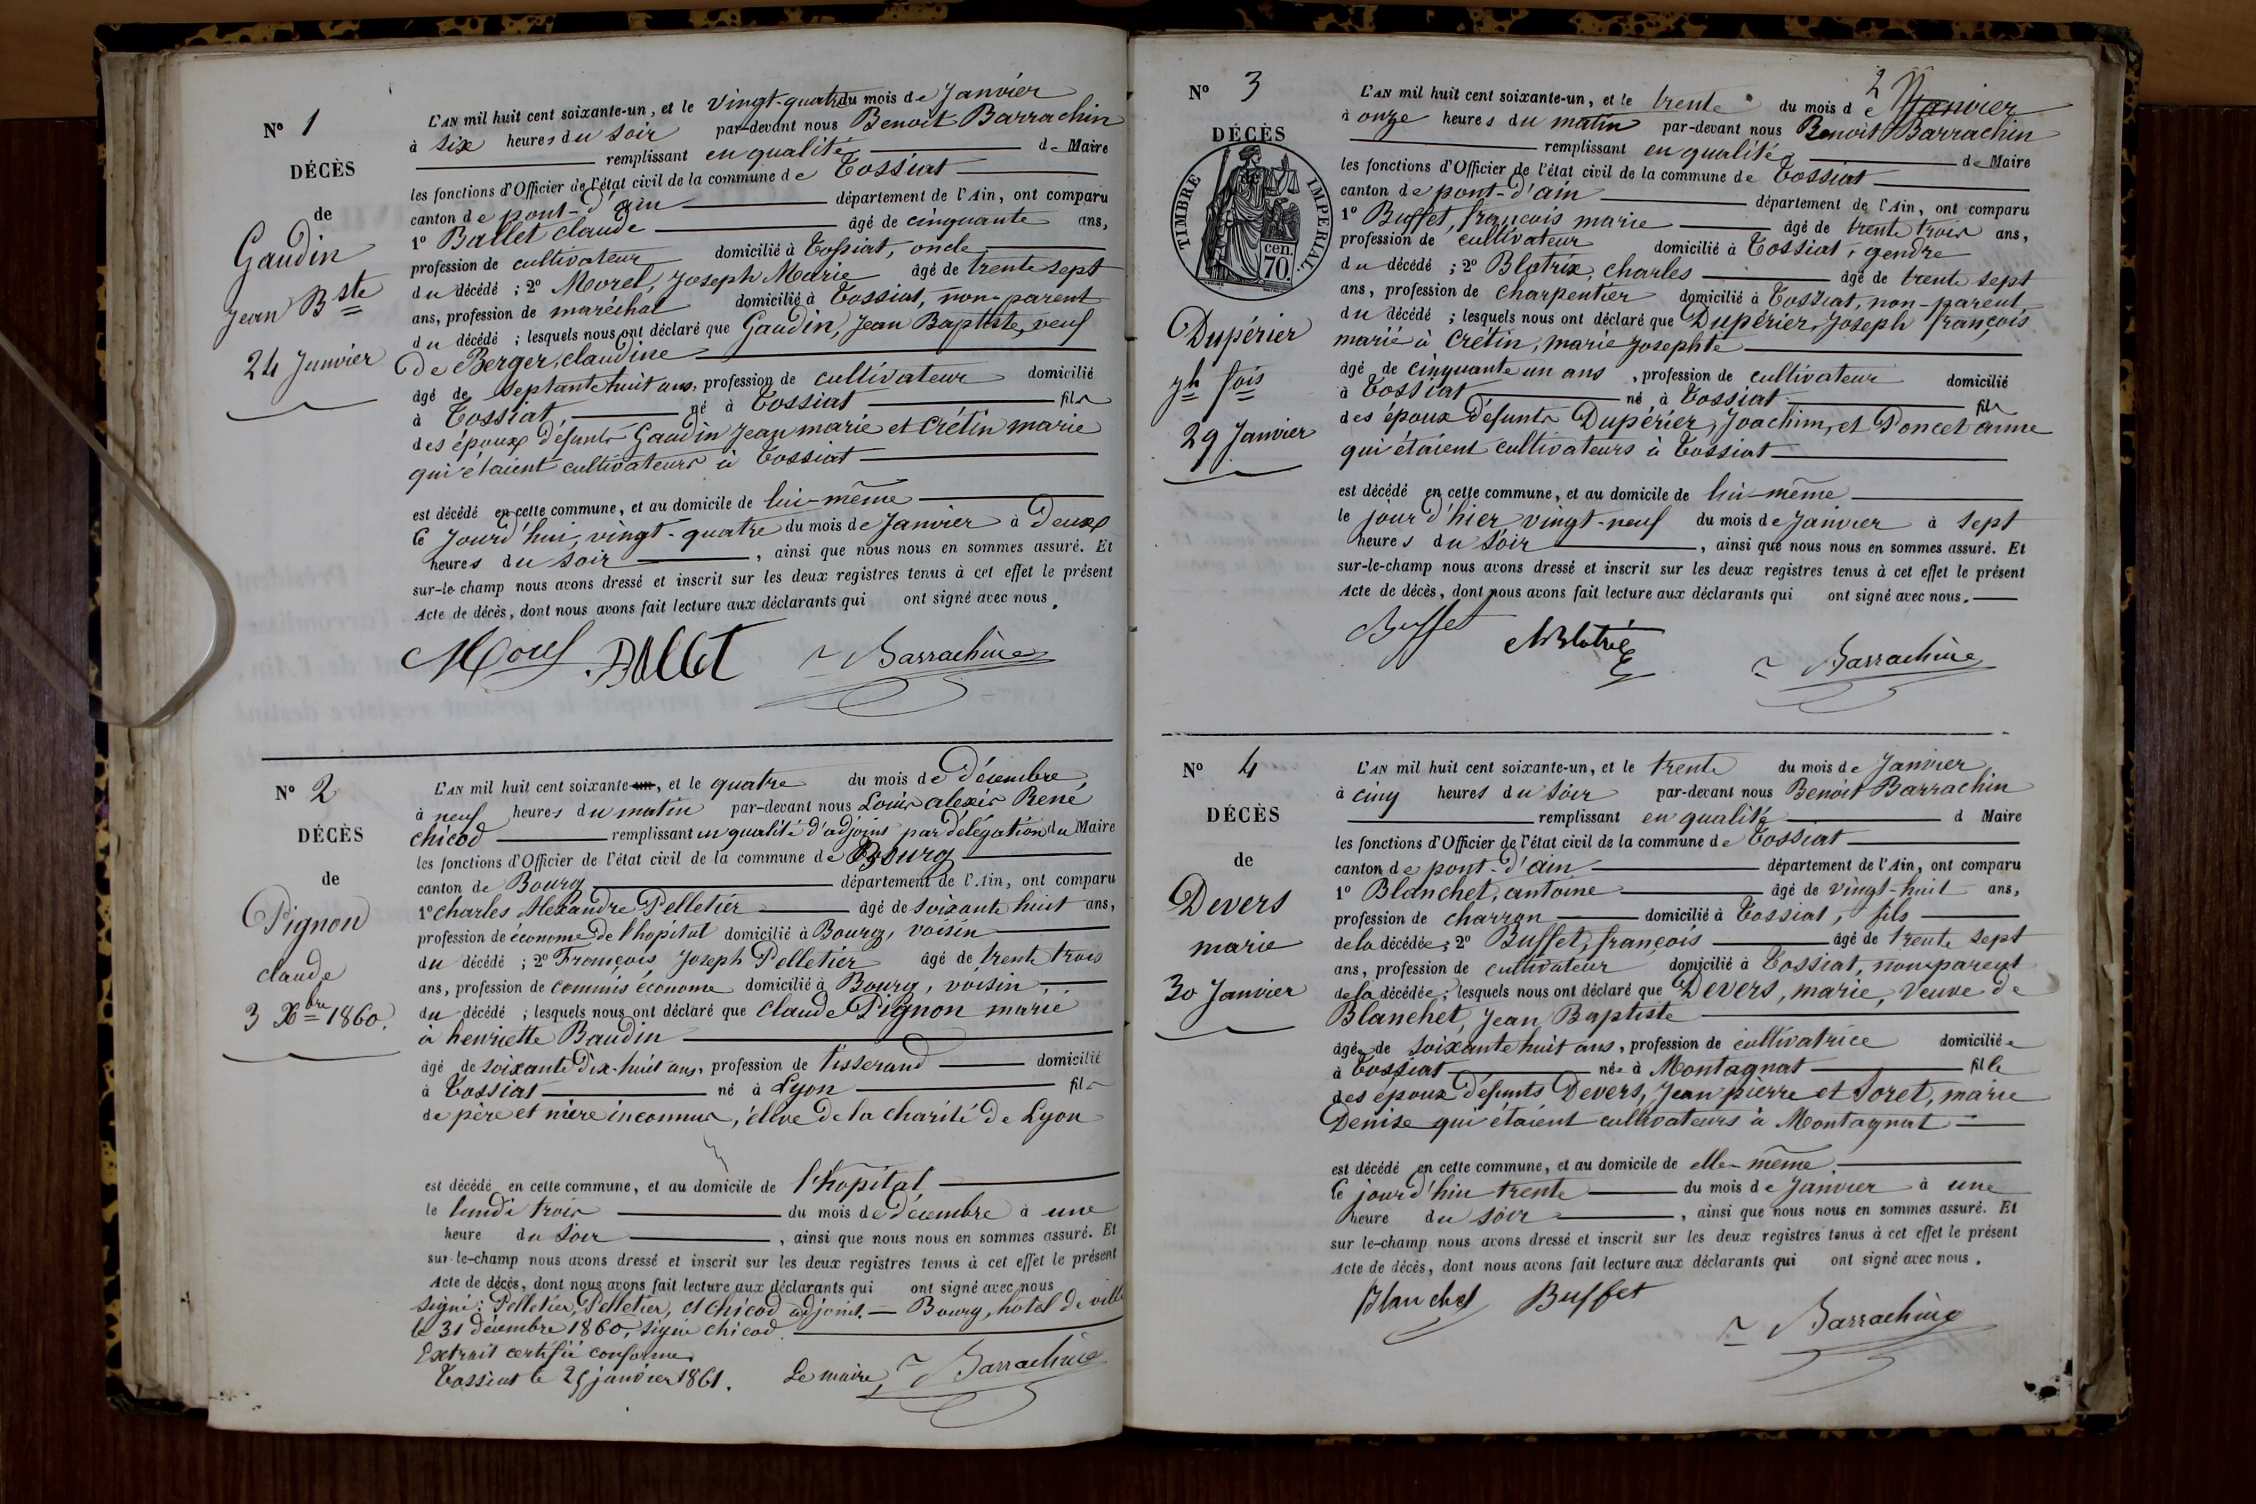 N° 1
DÉCÈS
de
Gaudin
Jean Bste
24 Janvier
L'AN mil huit cent soixante-un, et le vingt-quatre du mois de Janvier
à six heures du soir par-devant nous Benoit Barrachin
remplissant en qualité de Maire
les fonctions d'Officier de l'état civil de la commune de Tossiat
canton de pont-d'ain département de l'Ain, ont comparu
1° Ballet claude âgé de cinquante ans,
profession de cultivateur domicilié à Tossiat, oncle
du décédé ; 2° Morel, Joseph Marie âgé de trente sept
ans, profession de maréchal domicilié à Tossiat, non-parent
du décédé ; lesquels nous ont déclaré que Gaudin, Jean Baptiste, veuf
De Berger, claudine
âgé de septante huit ans, profession de cultivateur domicilié
à Tossiat, né à Tossiat fils
des époux défunts Gaudin Jean marie et Crétin marie
qui étaient cultivateurs à Tossiat
est décédé en cette commune, et au domicile de lui-même
le Jourd'hui, vingt-quatre du mois de Janvier à Deux
heures du soir, ainsi que nous nous en sommes assuré. Et
sur-le-champ nous avons dressé et inscrit sur les deux registres tenus à cet effet le présent
Acte de décès, dont nous avons fait lecture aux déclarants qui ont signé avec nous.
Barrachin
N° 2
DÉCÈS
de
Pignon
claude
3 Xbre 1860.
L'AN mil huit cent soixante-un, et le quatre du mois de Décembre
à neuf heures du matin par-devant nous Louis alexis René
chicod remplissant en qualité d'adjoint par délégation du Maire
les fonctions d'Officier de l'état civil de la commune de Bourg
canton de Bourg département de l'Ain, ont comparu
1° charles Alexandre Pelletier âgé de soixante huit ans,
profession de économe de l'hopital domicilié à Bourg, voisin
du décédé ; 2° François Joseph Pelletier âgé de trente trois
ans, profession de commis économe domicilié à Bourg, voisin
du décédé ; lesquels nous ont déclaré que Claude Pignon marié
à henriette Baudin
âgé de soixante Dix-huit ans, profession de tisserand domicilié
à Tossiat né à Lyon fils
de père et mère inconnus, élève de la charité de Lyon
est décédé en cette commune, et au domicile de l'hopital
le lundi trois du mois de Décembre à une
heure du soir, ainsi que nous nous en sommes assuré. Et
sur-le-champ nous avons dressé et inscrit sur les deux registres tenus à cet effet le présent
Acte de décès, dont nous avons fait lecture aux déclarants qui ont signé avec nous
signé: Pelletier, Pelletier, et chicod adjoint. — Bourg, hôtel de ville
le 31 décembre 1860, signé chicod.
Extrait certifié conforme
Tossiat le 25 janvier 1861. Le maire, Barrachin
2
N° 3
DÉCÈS
de
TIMBRE IMPERIAL.
70 cen.
Dupérier
Jh fois
29 Janvier
L'AN mil huit cent soixante-un, et le trente du mois de Janvier
à onze heures du matin par-devant nous Benoit Barrachin
remplissant en qualité de Maire
les fonctions d'Officier de l'état civil de la commune de Tossiat
canton de pont-d'ain département de l'Ain, ont comparu
1° Buffet, françois marie âgé de trente trois ans,
profession de cultivateur domicilié à Tossiat, gendre
du décédé ; 2° Blatrix, charles âgé de trente sept
ans, profession de charpentier domicilié à Tossiat, non-parent
du décédé ; lesquels nous ont déclaré que Dupérier, Joseph françois
marié à Crétin, marie Josephte
âgé de cinquante un ans, profession de cultivateur domicilié
à Tossiat né à Tossiat fils
des époux défunts Dupérier, Joachim, et Poncet anne
qui étaient cultivateurs à Tossiat
est décédé en cette commune, et au domicile de lui-même
le jour d'hier vingt-neuf du mois de Janvier à sept
heures du soir, ainsi que nous nous en sommes assuré. Et
sur-le-champ nous avons dressé et inscrit sur les deux registres tenus à cet effet le présent
Acte de décès, dont nous avons fait lecture aux déclarants qui ont signé avec nous.
Buffet Barrachin
N° 4
DÉCÈS
de
Devers
marie
30 Janvier
L'AN mil huit cent soixante-un, et le trente du mois de Janvier
à cinq heures du soir par-devant nous Benoit Barrachin
remplissant en qualité d Maire
les fonctions d'Officier de l'état civil de la commune de Tossiat
canton de pont-d'ain département de l'Ain, ont comparu
1° Blanchet, antoine âgé de vingt-huit ans,
profession de charron domicilié à Tossiat, fils
de la décédée ; 2° Buffet, françois âgé de trente sept
ans, profession de cultivateur domicilié à Tossiat, non-parent
de la décédée ; lesquels nous ont déclaré que Devers, marie, Veuve de
Blanchet, Jean Baptiste
âgée de soixante huit ans, profession de cultivatrice domiciliée
à Tossiat née à Montagnat fille
des époux défunts Devers, Jean pierre et Soret, marie
Denise qui étaient cultivateurs à Montagnat
est décédé en cette commune, et au domicile de elle-même.
le jourd'hui trente du mois de Janvier à une
heure du soir, ainsi que nous nous en sommes assuré. Et
sur le-champ nous avons dressé et inscrit sur les deux registres tenus à cet effet le présent
Acte de décès, dont nous avons fait lecture aux déclarants qui ont signé avec nous.
Blanchet Buffet Barrachin